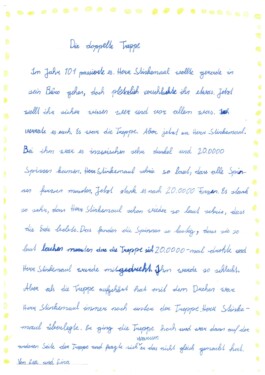 Die doppelte Treppe
Im Jahr 101 passierte es. Herr Stinkemaul wollte gerade in
sein Büro gehen, doch plötzlich ihr etwas. Jetzt
wollt ihr sicher wissen wer und vor allem was. Ich
verrate es euch. Es war die Treppe. Aber jetzt zu Herr Stinkemaul.
Bei ihm war es inzwischen sehr dunkel und 20.0000
Spinnen kamen. Herr Stinkemaul so laut, dass alle Spin-
nen mussten. Jetzt es nach 20.0000 Es stank
so sehr, dass Herr Stinkemaul schon wieder so laut
die Das fanden die Spinnen so lustig, dass sie so
laut lachen mussten, dass die Treppe mit 20.0000-mal drehte und
Herr Stinkemaul wurde mitgedreht. Ihm wurde so schlecht.
Aber als die Treppe aufgehört hat mit dem Drehen war
Herr Stinkemaul immer noch unten der Treppe. Herr Stinke-
maul überlegte. Er ging die Treppe hoch und war dann auf der
anderen Seite der Treppe und fragte sich warum er das nicht gleich gemacht hat.
Von Lea und Lina